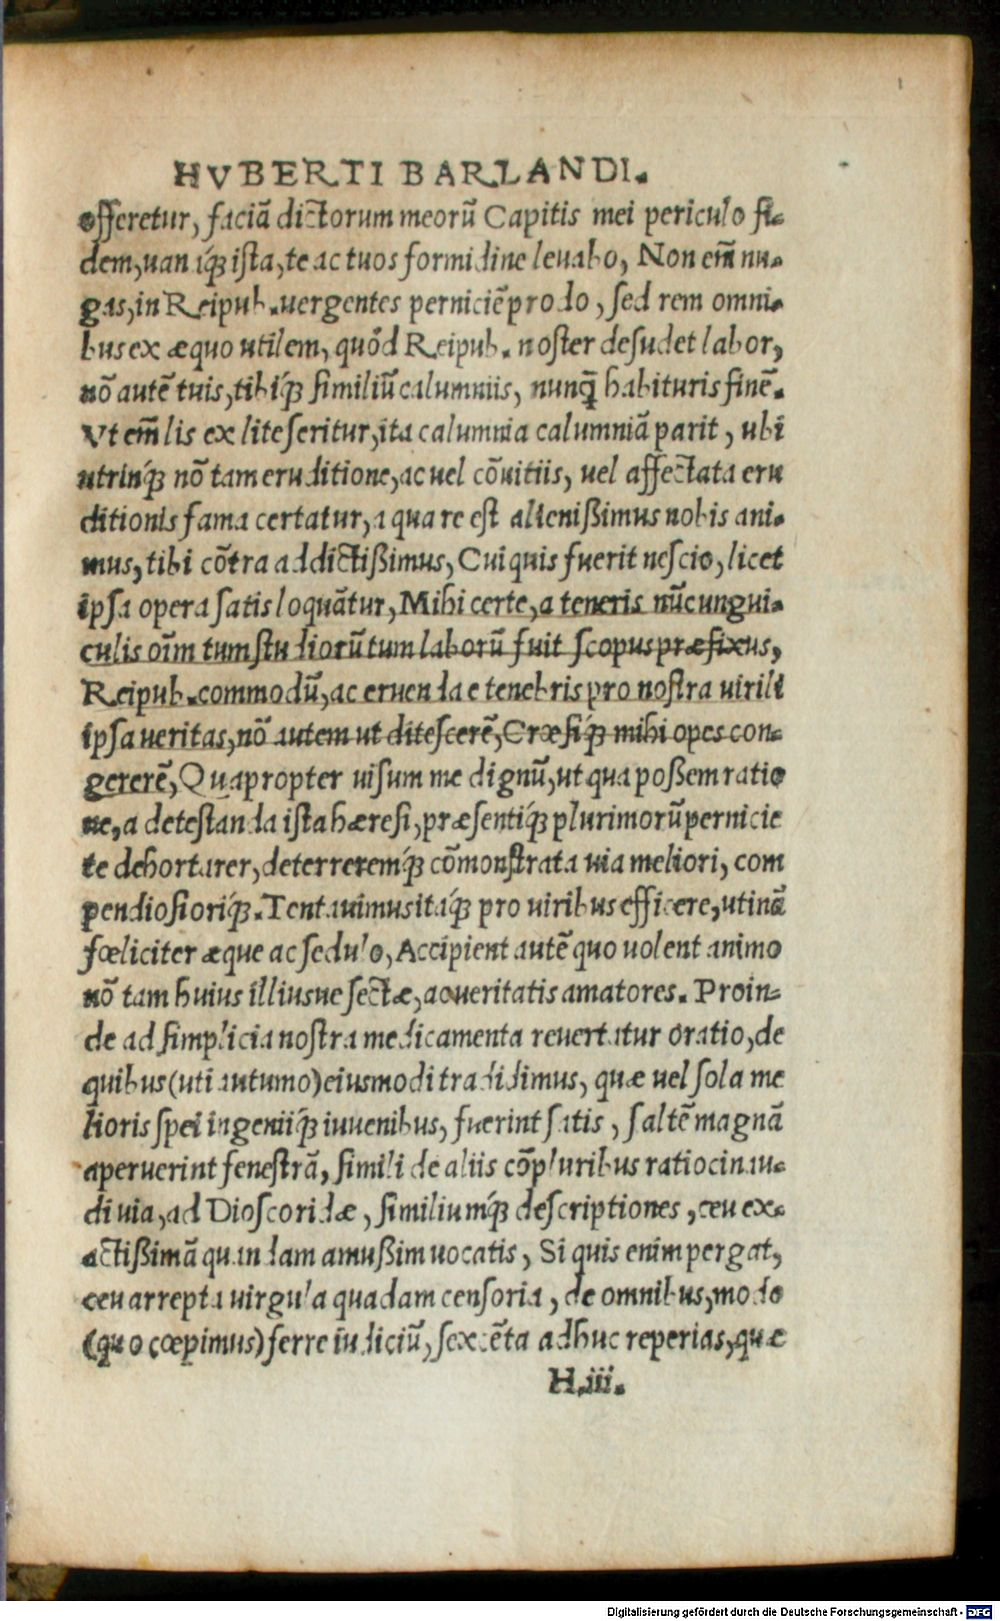 HVBERTI BARLANDI.
offeretur, faciā dictorum meorū Capitis mei periculo fi-
dem, uan iq́ꝫ ista, te ac tuos formidine leuabo, Non em̄ nu-
gas, in Reipub. uergentes perniciē prodo, sed rem omni-
bus ex æquo utilem, quôd Reipub. noster desudet labor,
nō autē tuis, tibiq́ꝫ similiū calumniis, nunq̄ habituris finē.
Vt em̄ lis ex lite seritur, ita calumnia calumniā parit, ubi
utrinq́ꝫ nō tam eruditione, ac uel cōuitiis, uel affectata eru
ditionis fama certatur, a qua re est alienißimus nobis ani-
mus, tibi cōtra addictißimus, Cui quis fuerit nescio, licet
ipsa opera satis loquātur, Mihi certe, a teneris nūc ungui-
culis oīm tum studiorū tum laborū fuit scopus præfixus,
Reipub. commodū, ac eruendae tenebris pro nostra uirili
ipsa ueritas, nō autem ut ditescerē, Cræsiq́ꝫ mihi opes con-
gererē, Quapropter uisum me dignū, ut qua poßem ratio
ne, a detestanda ista hæresi, præsentiq́ꝫ plurimorū pernicie
te dehortarer, deterreremq́ꝫ cōmonstrata uia meliori, com
pendiosioriq́ꝫ. Tentauimus itaq́ꝫ pro uiribus efficere, utinā
fœliciter æque ac sedulo, Accipient autē quo uolent animo
nō tam huius illiusue sectæ, ac ueritatis amatores. Proin-
de ad simplicia nostra medicamenta reuertatur oratio, de
quibus (uti autumo) eiusmodi tradidimus, quæ uel sola me
lioris spei ingeniiq́ꝫ iuuenibus, fuerint satis, saltē magnā
aperuerint fenestrā, simili de aliis cōpluribus ratiocinau-
di uia, ad Dioscoridæ, similiumq́ꝫ descriptiones, ceu ex-
actißimā quandam amußim uocatis, Si quis enim pergat,
ceu arrepta uirgula quadam censoria, de omnibus, modo
(quo cœpimus) ferre iudiciū, sexcēta adhuc reperias, quæ
H.iii.
Digitalisierung gefördert durch die Deutsche Forschungsgemeinschaft - DFG